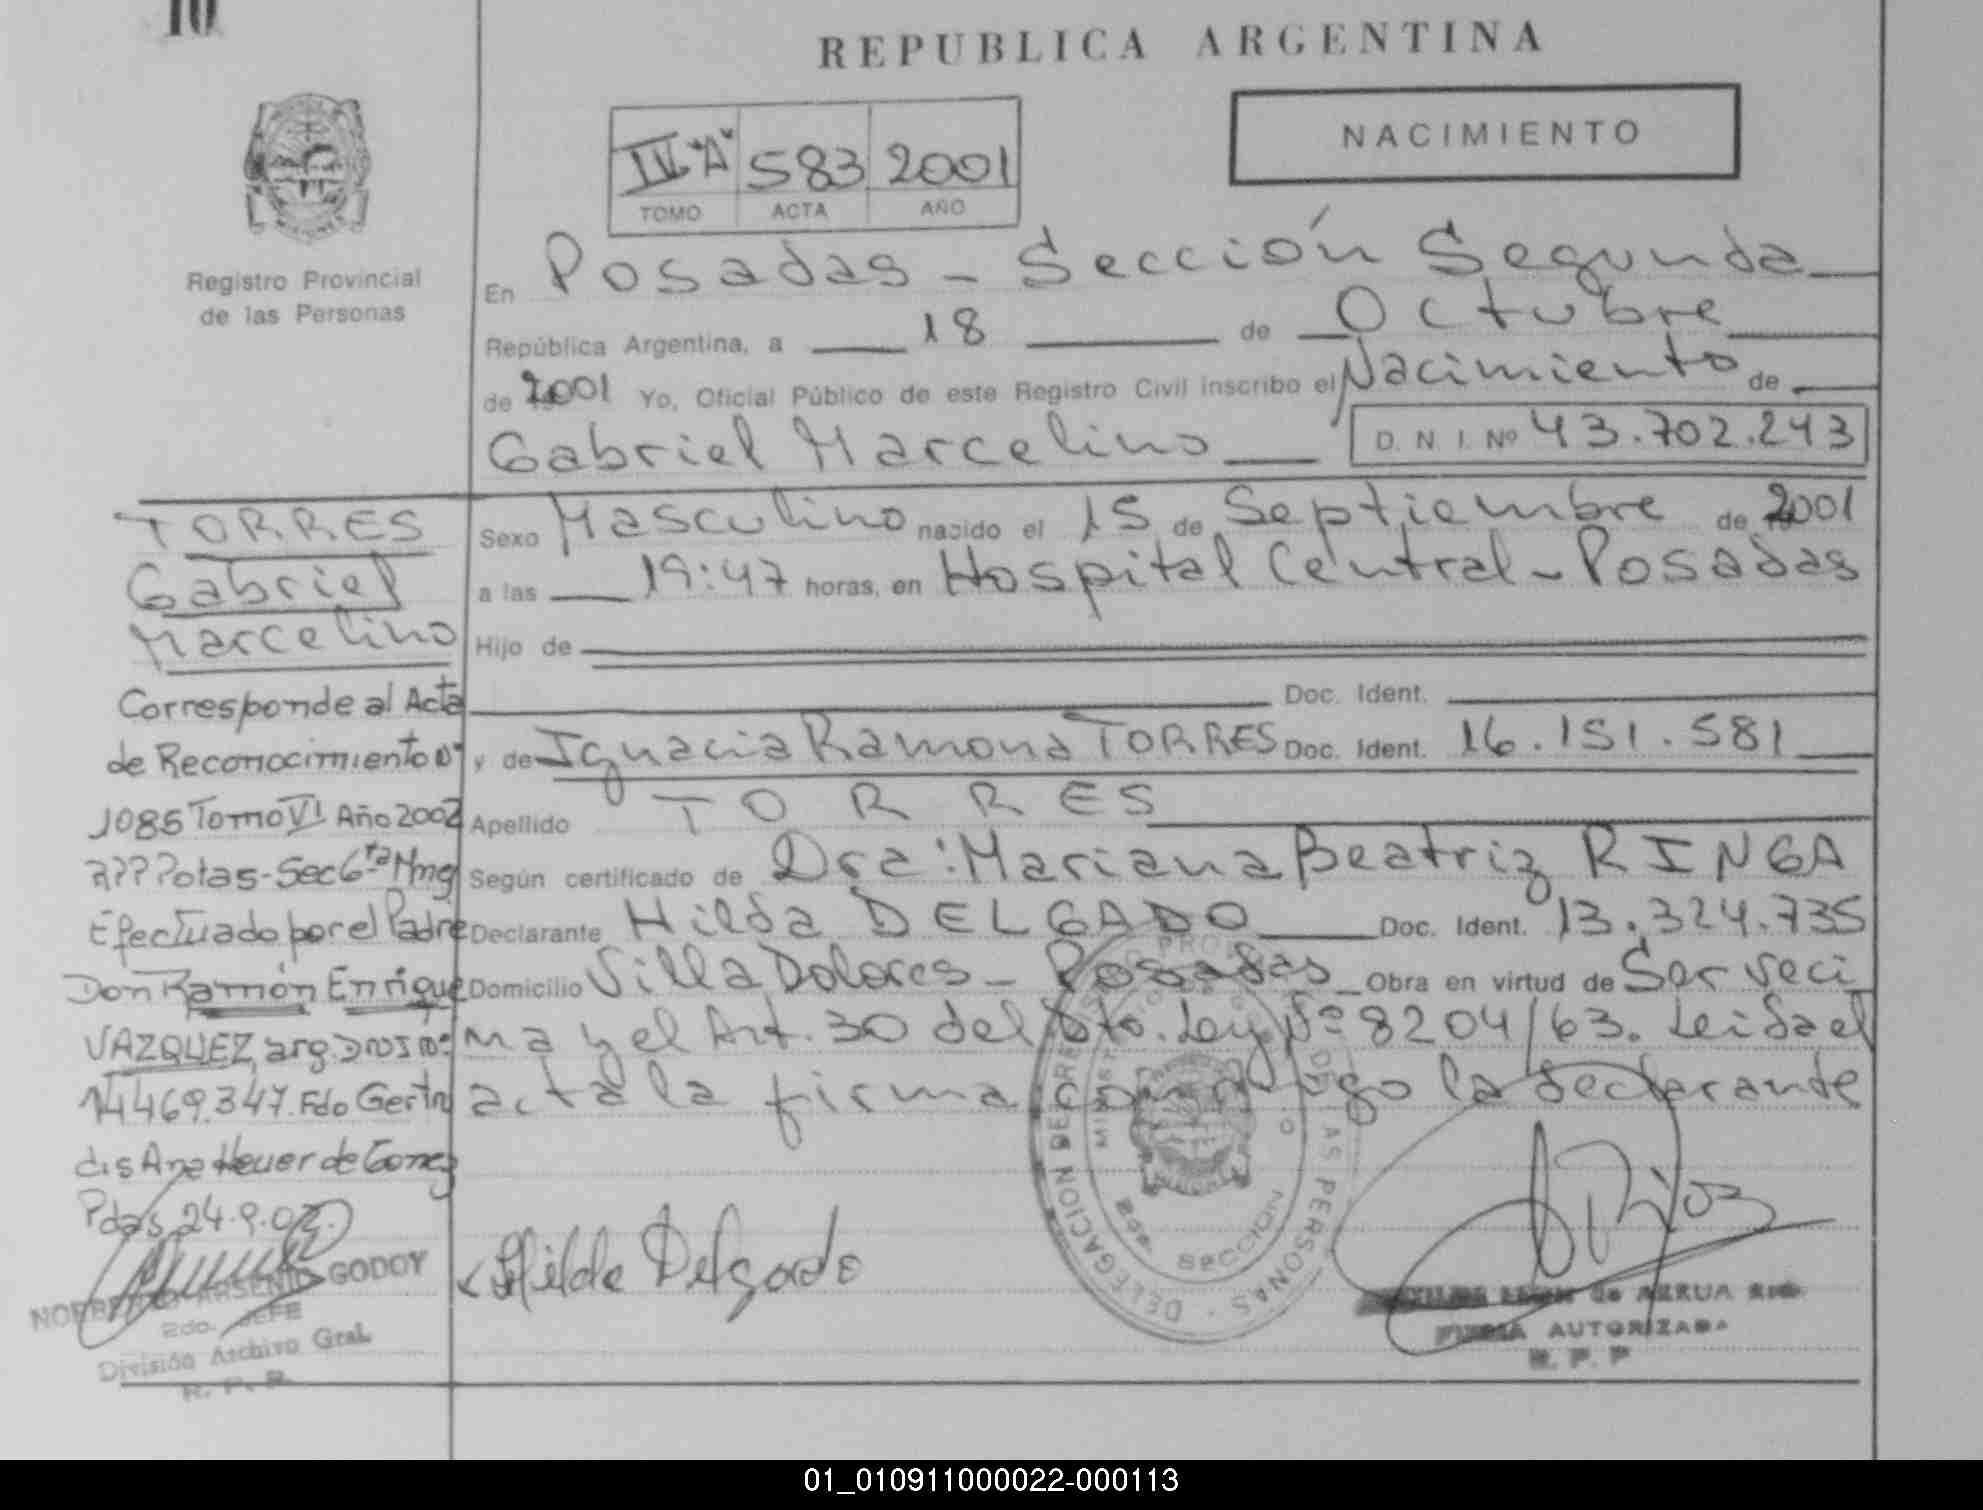 10
REPUBLICA ARGENTINA
NACIMIENTO
IV "A" 583 2001
TOMO ACTA AÑO
Registro Provincial
de las Personas
En Posadas - Sección Segunda
República Argentina, a 18 de Octubre
de 2001 Yo, Oficial Público de este Registro Civil inscribo el Nacimiento de
Gabriel Marcelino D. N. I. Nº 43.702.243
Sexo Masculino nacido el 15 de Septiembre de 2001
a las 19:47 horas, en Hospital Central - Posadas
Hijo de
Doc. Ident.
y de Ignacia Ramona TORRES Doc. Ident. 16.151.581
Apellido TORRES
Según certificado de Dra: Mariana Beatriz RINGA
Declarante Hilda DELGADO Doc. Ident. 13.324.735
Domicilio Villa Dolores - Posadas Obra en virtud de Ser veci
na y el Art. 30 del Dto. Ley Nº 8204/63. Leida el
acta la firma conmigo la declarante
TORRES
Gabriel
Marcelino
Corresponde al Acta
de Reconocimiento nº
1085 Tomo VI Año 2002
Sec 6ta
Efectuado por el Padre
Don Ramón Enrique
VAZQUEZ, arg. nº
14.469.347. Fdo Gertru
dis Ana Heuer de Gomez
Pdas, 24.9.02.
NORBERTO ARSENIO GODOY
2do. JEFE
División Archivo Gral.
R. P. P.
Hilda Delgado
DELEGACION DE LAS PERSONAS
SECCION
de AZRUA
FIRMA AUTORIZADA
R. P. P
01_010911000022-000113